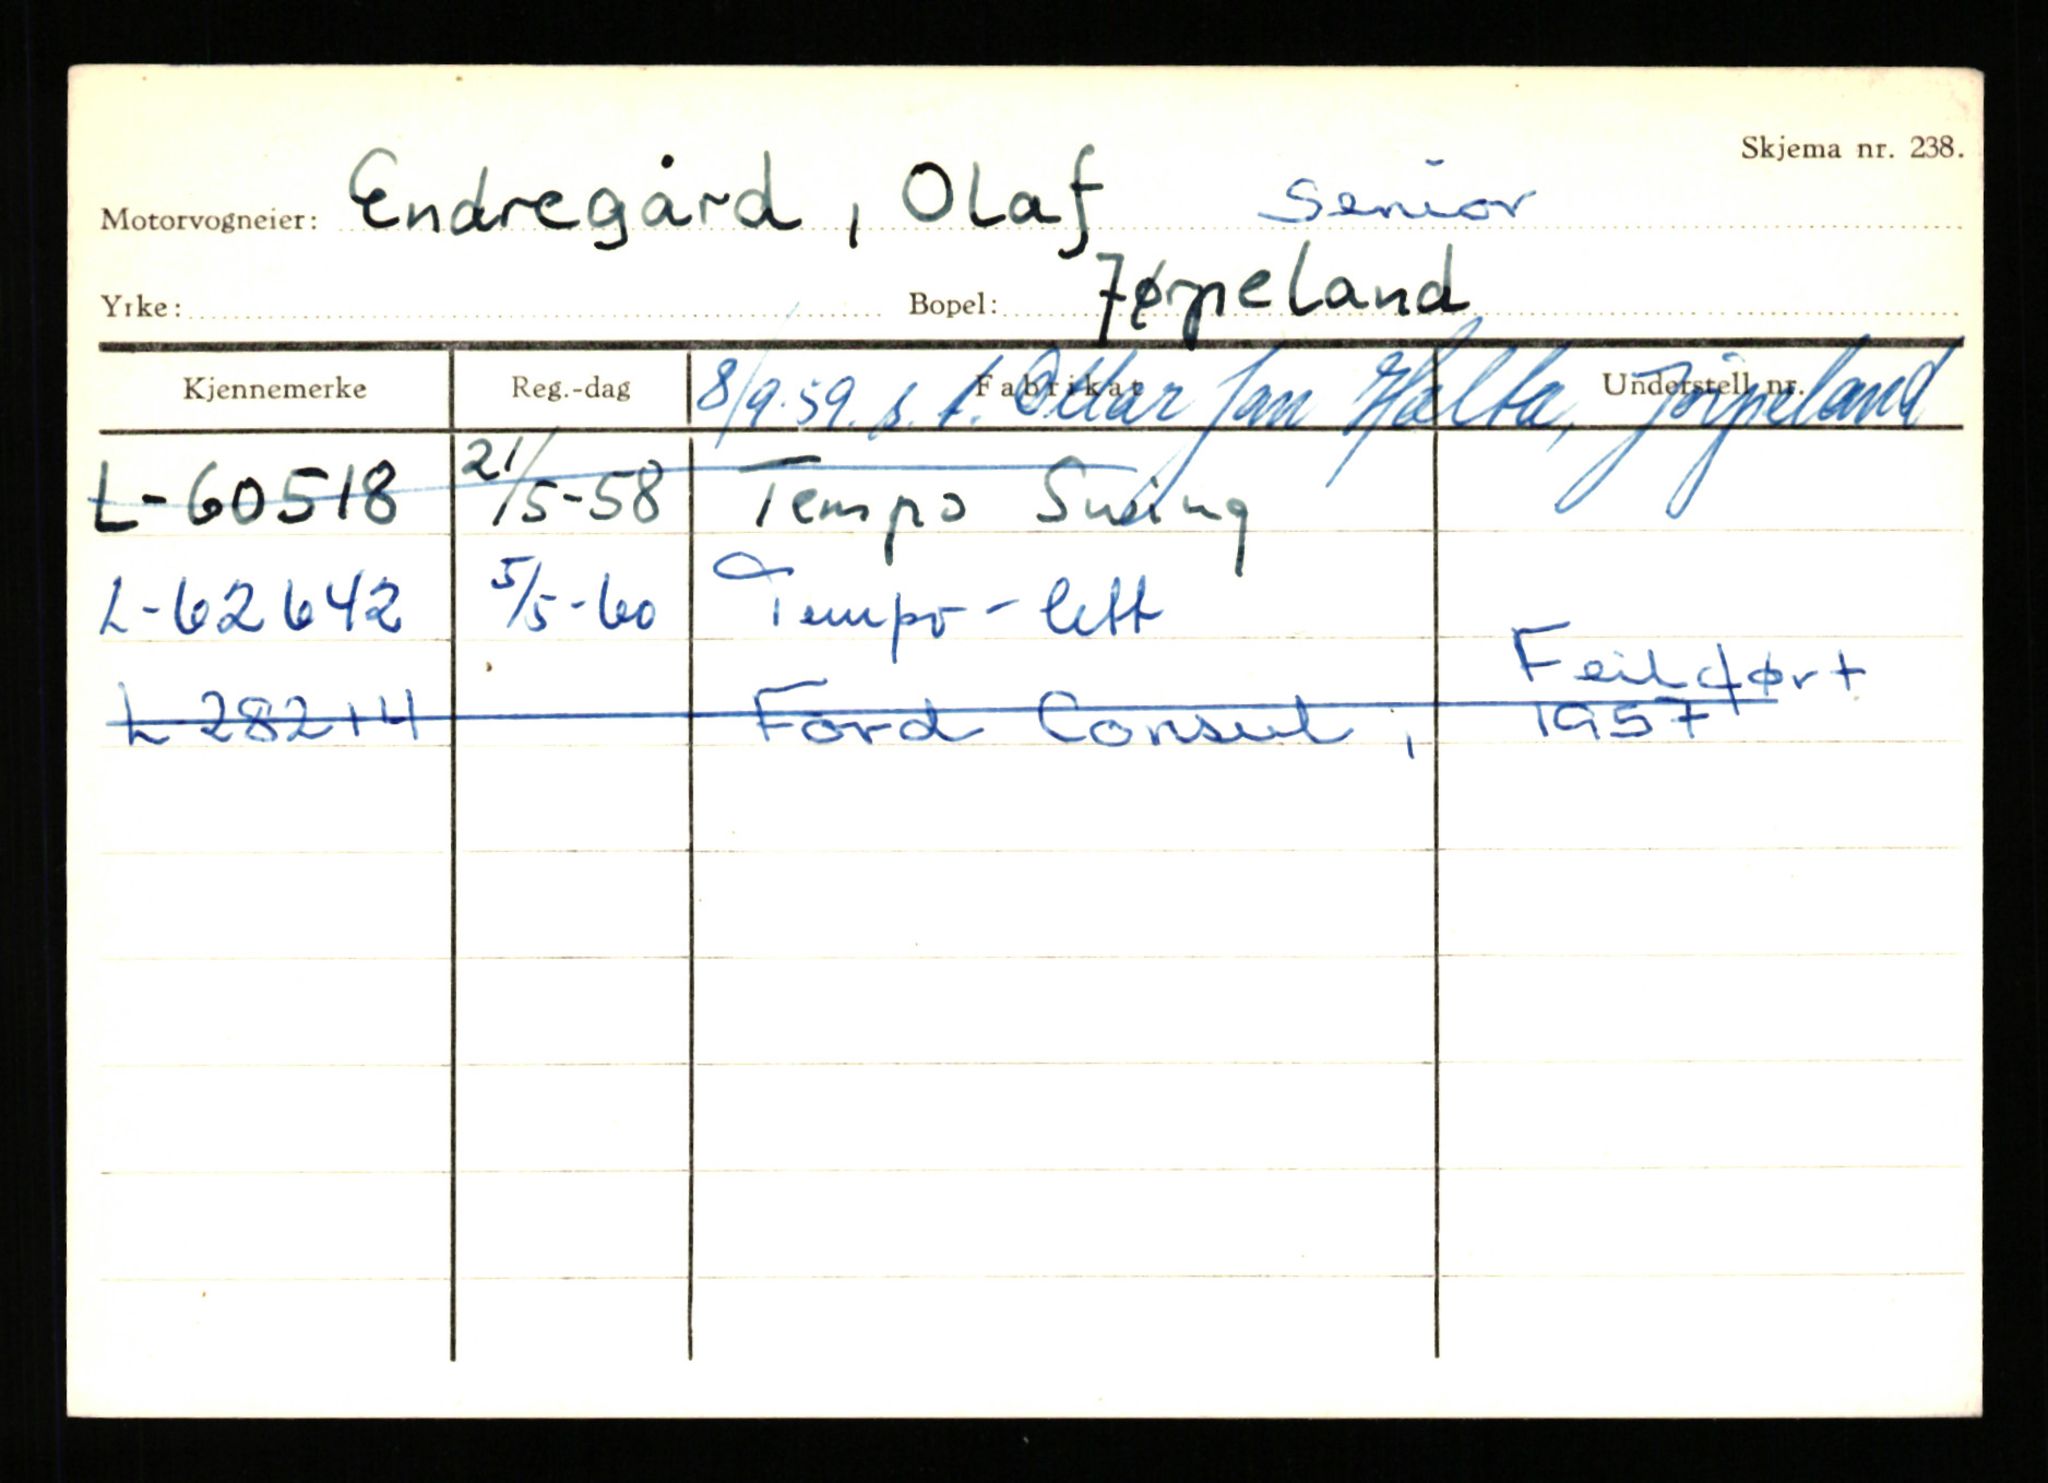 Skjema nr. 238.
Motorvogneier: Endregård, Olaf Senior
Yrke: Bopel: Jørpeland
Kjennemerke Reg.-dag Fabrikat Understell nr.
8/9.59. s. t. Ottar Jan Halta, Jørpeland
L-60518 21/5-58 Tempo Swing
L-62642 5/5-60 Tempo-lett
Feilført
L-28214 Ford Consul, 1957